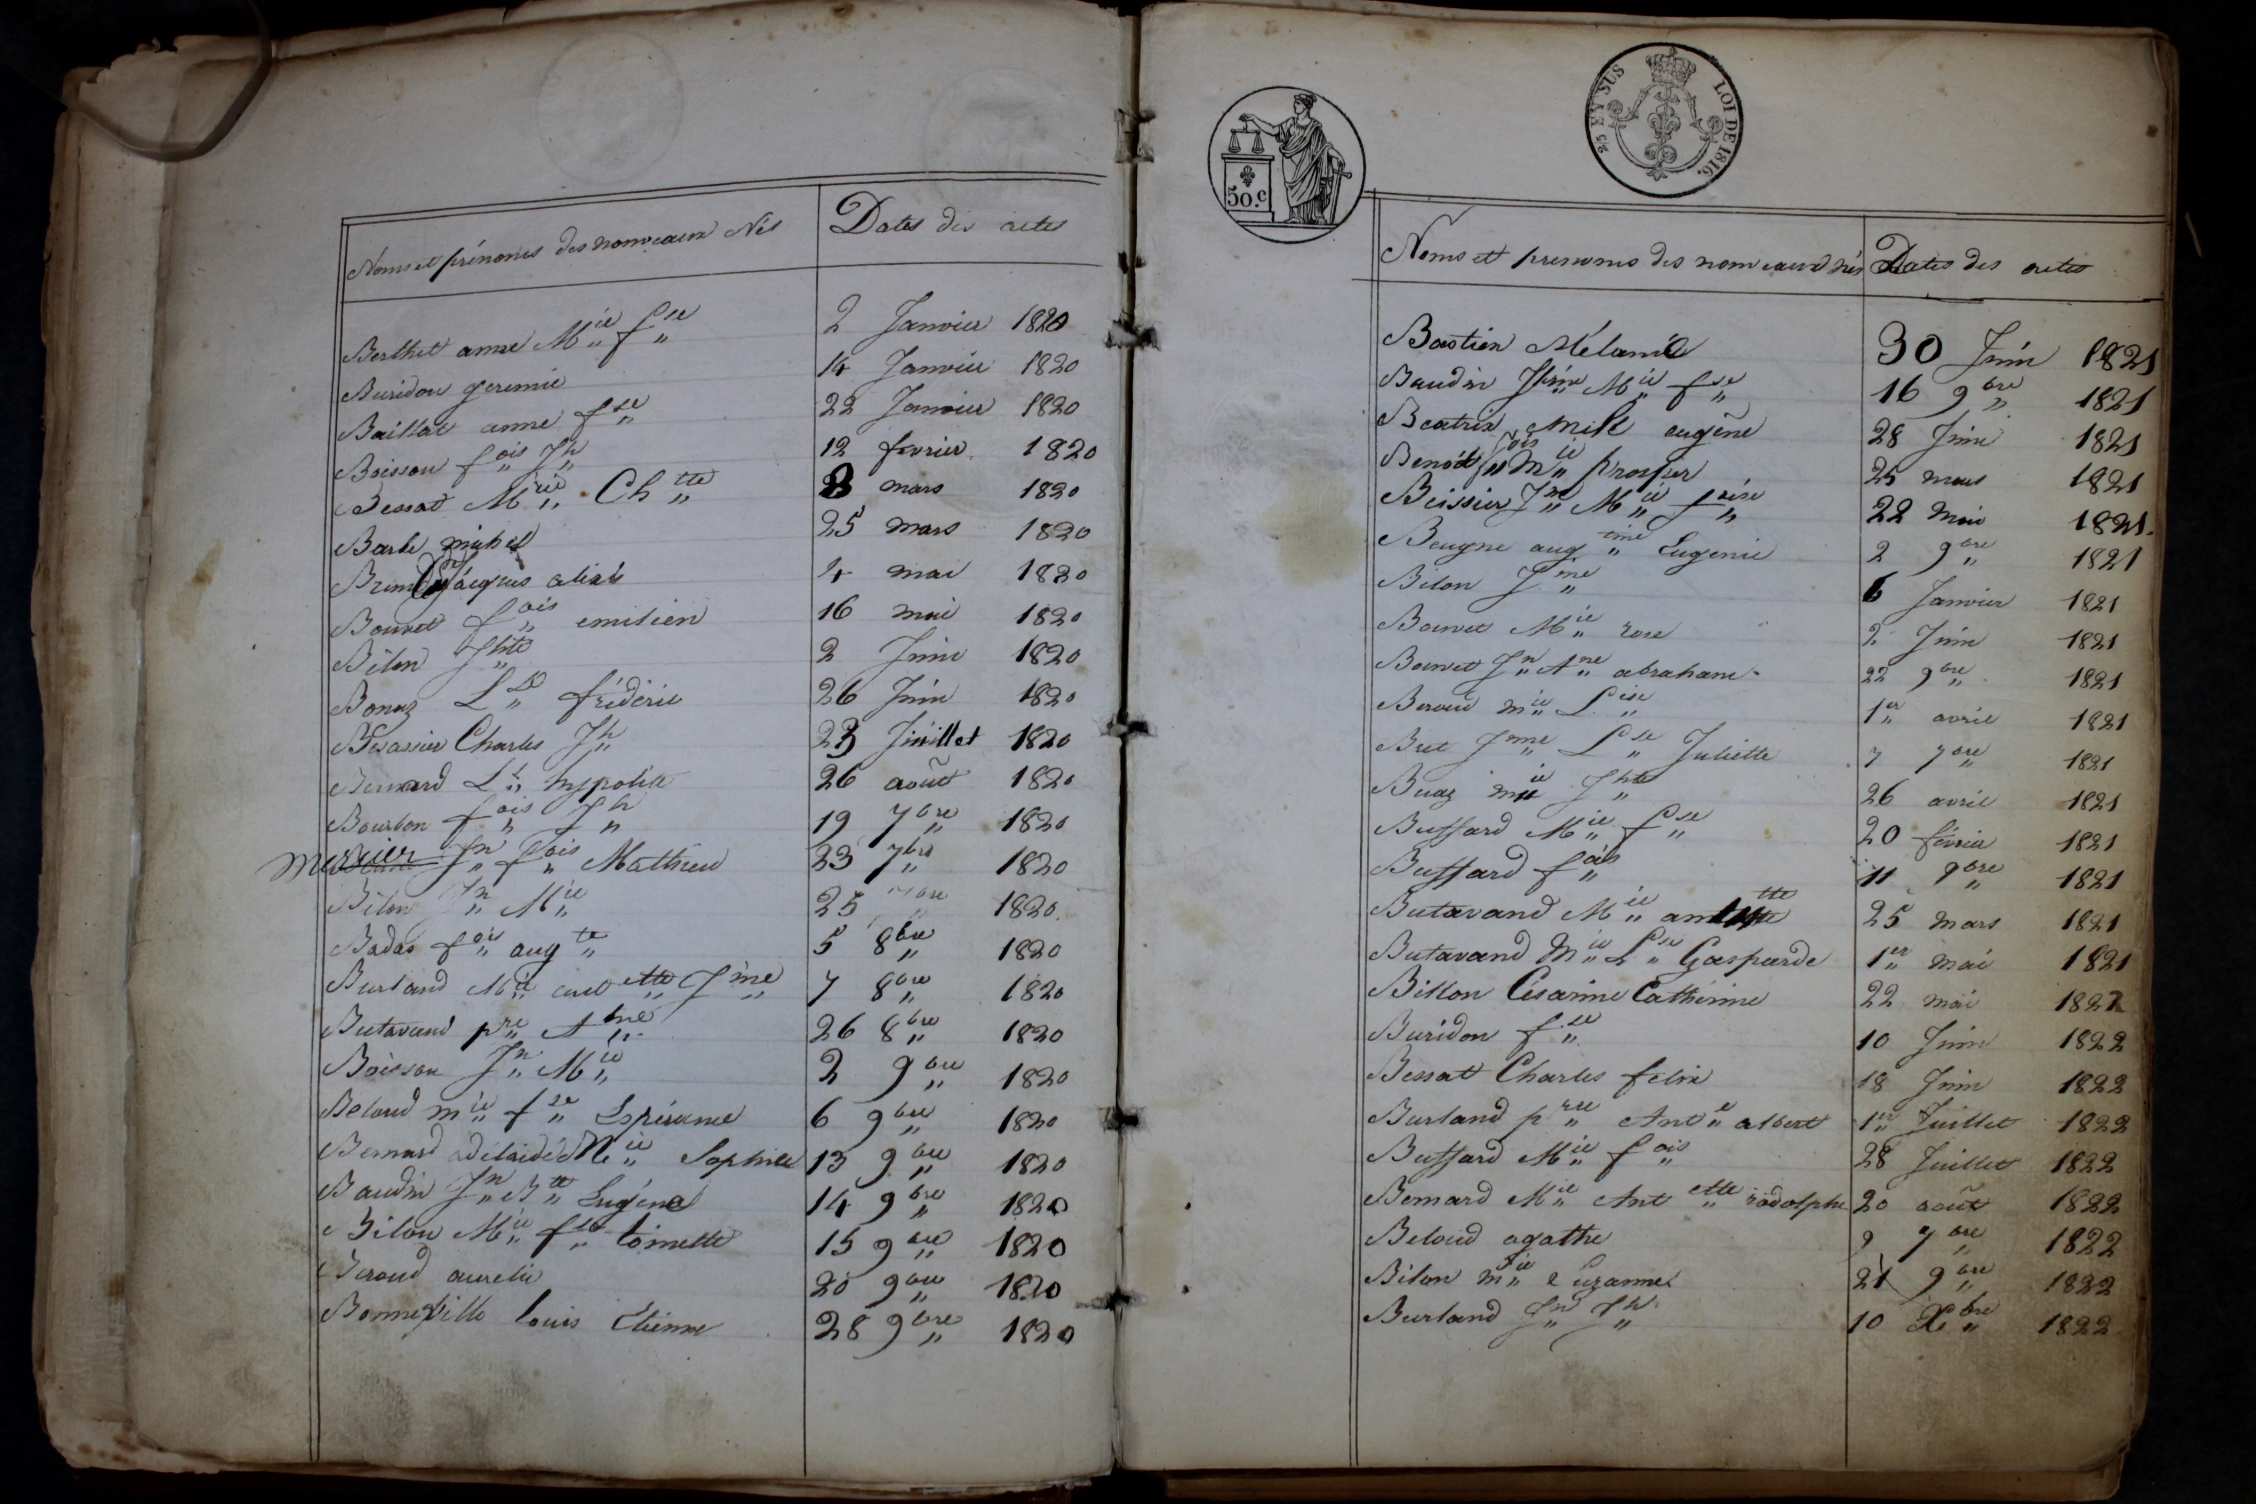 Noms et prénoms des nouveaux Nés Dates des actes
Berthet anne Mie fse 2 Janvier 1820
Buridon geremie 14 Janvier 1820
Baillat anne fse 22 Janvier 1820
Boisson fois Jh 12 fevrier 1820
Bessat Mie Chtte 8 mars 1820
Barbe michel 25 mars 1820
Jacques alexis 4 mai 1820
Bouvet fois emilien 16 mai 1820
Bilon Jhte 2 Juin 1820
Bonaz Lse fréderic 26 Juin 1820
Charles Jh 23 Juillet 1820
Bernard Ls hypolite 26 août 1820
Bourbon fois Jh 19 7bre 1820
mercier Jn fois Mathieu 23 7bre 1820
Bilon Jn Mie 25 7bre 1820
Badas fois augte 5 8bre 1820
Burland Mie antette Jme 7 8bre 1820
Butavand pre Atne 26 8bre 1820
Boisson Jn Mie 2 9bre 1820
Beloud mie fse Espérance 6 9bre 1820
Bernard adélaide Mie Sophie 13 9bre 1820
Baudin Jn Btte Eugéne 14 9bre 1820
Bilon Mie fse toinette 15 9bre 1820
Beroud aurelie 20 9bre 1820
Bonneville louis Etienne 28 9bre 1820
50.c
25 EN SUS LOI DE 1816.
Noms et prenoms des nouveaux nés Dates des actes
Bastien Mélanie 30 Juin 1821
Baudin Jme Mie fse 16 9bre 1821
Beatrix emile eugêne 28 Juin 1821
Benoît fois Mie prosper 25 mars 1821
Beissier Jn Mie 22 mai 1821.
Beugne augtine Eugenie 2 9bre 1821
Bilon Jme 6 Janvier 1821
Bouvet Mie rose 2 Juin 1821
Bouvet Jn Ane abraham 22 9bre 1821
Beroud mie Lise 1er avril 1821
Buet Jme Lse Juliette 7 7bre 1821
Buaz mie Jhte 26 avril 1821
Buffard Mie fse 20 février 1821
Buffard fois 11 9bre 1821
Butavand Mie antette 25 mars 1821
Butavand Mie Lse Gasparde 1er mai 1821
Billon Césarine Cathérine 22 mai 1822
Buridon fse 10 Juin 1822
Bessat Charles felix 18 Juin 1822
Burland pre Ante albert 1er Juillet 1822
Buffard Mie fois 28 Juillet 1822
Bernard Mie Antette rodolphe 20 août 1822
Beloud agathe 9 7bre 1822
Bilon mie Suzanne 21 9bre 1822
Burland Jn Jh 10 Xbre 1822